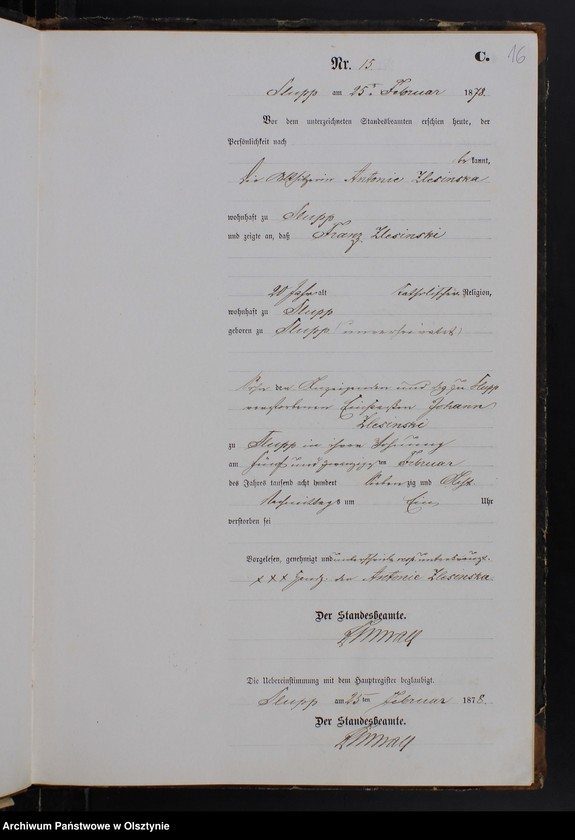 C. 16
Nr. 15.
Slupp am 25t Februar 1878.
Vor dem unterzeichneten Standesbeamten erschien heute, der
Persönlichkeit nach
bekannt,
die Antonie Zlesinska
wohnhaft zu Slupp
und zeigte an, daß Franz Zlesinski
20 Jahr alt katholischer Religion,
wohnhaft zu Slupp
geboren zu Slupp (unverheirathet)
Sohn der Anzeigenden und zu Slupp
verstorbenen Einsassen Johann
Zlesinski
zu Slupp in ihrer Wohnung
am fünf und zwanzigsten Februar
des Jahres tausend acht hundert siebenzig und Acht
Nachmittags um Ein Uhr
verstorben sei
Vorgelesen, genehmigt und
xxx der Antonie Zlesinska
Der Standesbeamte.
Die Uebereinstimmung mit dem Hauptregister beglaubigt.
Slupp am 25ten Februar 1878.
Der Standesbeamte.
Archiwum Państwowe w Olsztynie